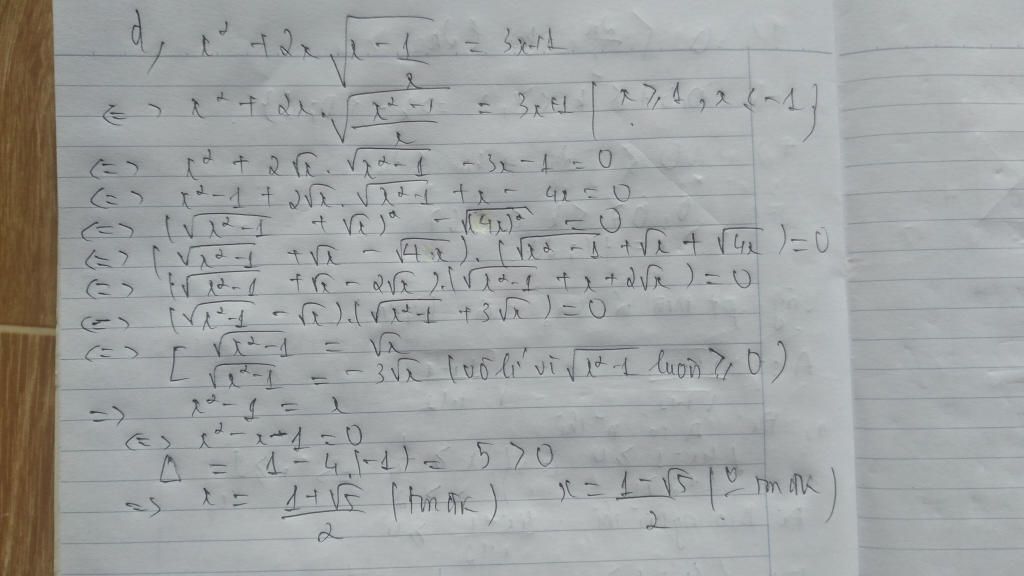 d, x² + 2x √(x - 1/x) = 3x+1
<=> x² + 2x. √((x²-1)/x) = 3x+1 { x ⩾ 1, x < -1 }
<=> x² + 2√x . √(x²-1) - 3x - 1 = 0
<=> x² - 1 + 2√x . √(x²-1) + x - 4x = 0
<=> (√(x²-1) + √x)² - √(4x)² = 0
<=> (√(x²-1) + √x - √(4x)) . (√(x²-1) + √x + √(4x)) = 0
<=> (√(x²-1) + √x - 2√x).(√(x²-1) + x + 2√x) = 0
<=> (√(x²-1) - √x).(√(x²-1) + 3√x) = 0
<=> [ √(x²-1) = √x
√(x²-1) = - 3√x (vô lí vì √(x²-1) luôn ⩾ 0)
=> x² - 1 = x
<=> x² - x - 1 = 0
Δ = 1 - 4.(-1) = 5 > 0
=> x = (1+√5)/2 (tmđk) x = (1-√5)/2 (tmđk)